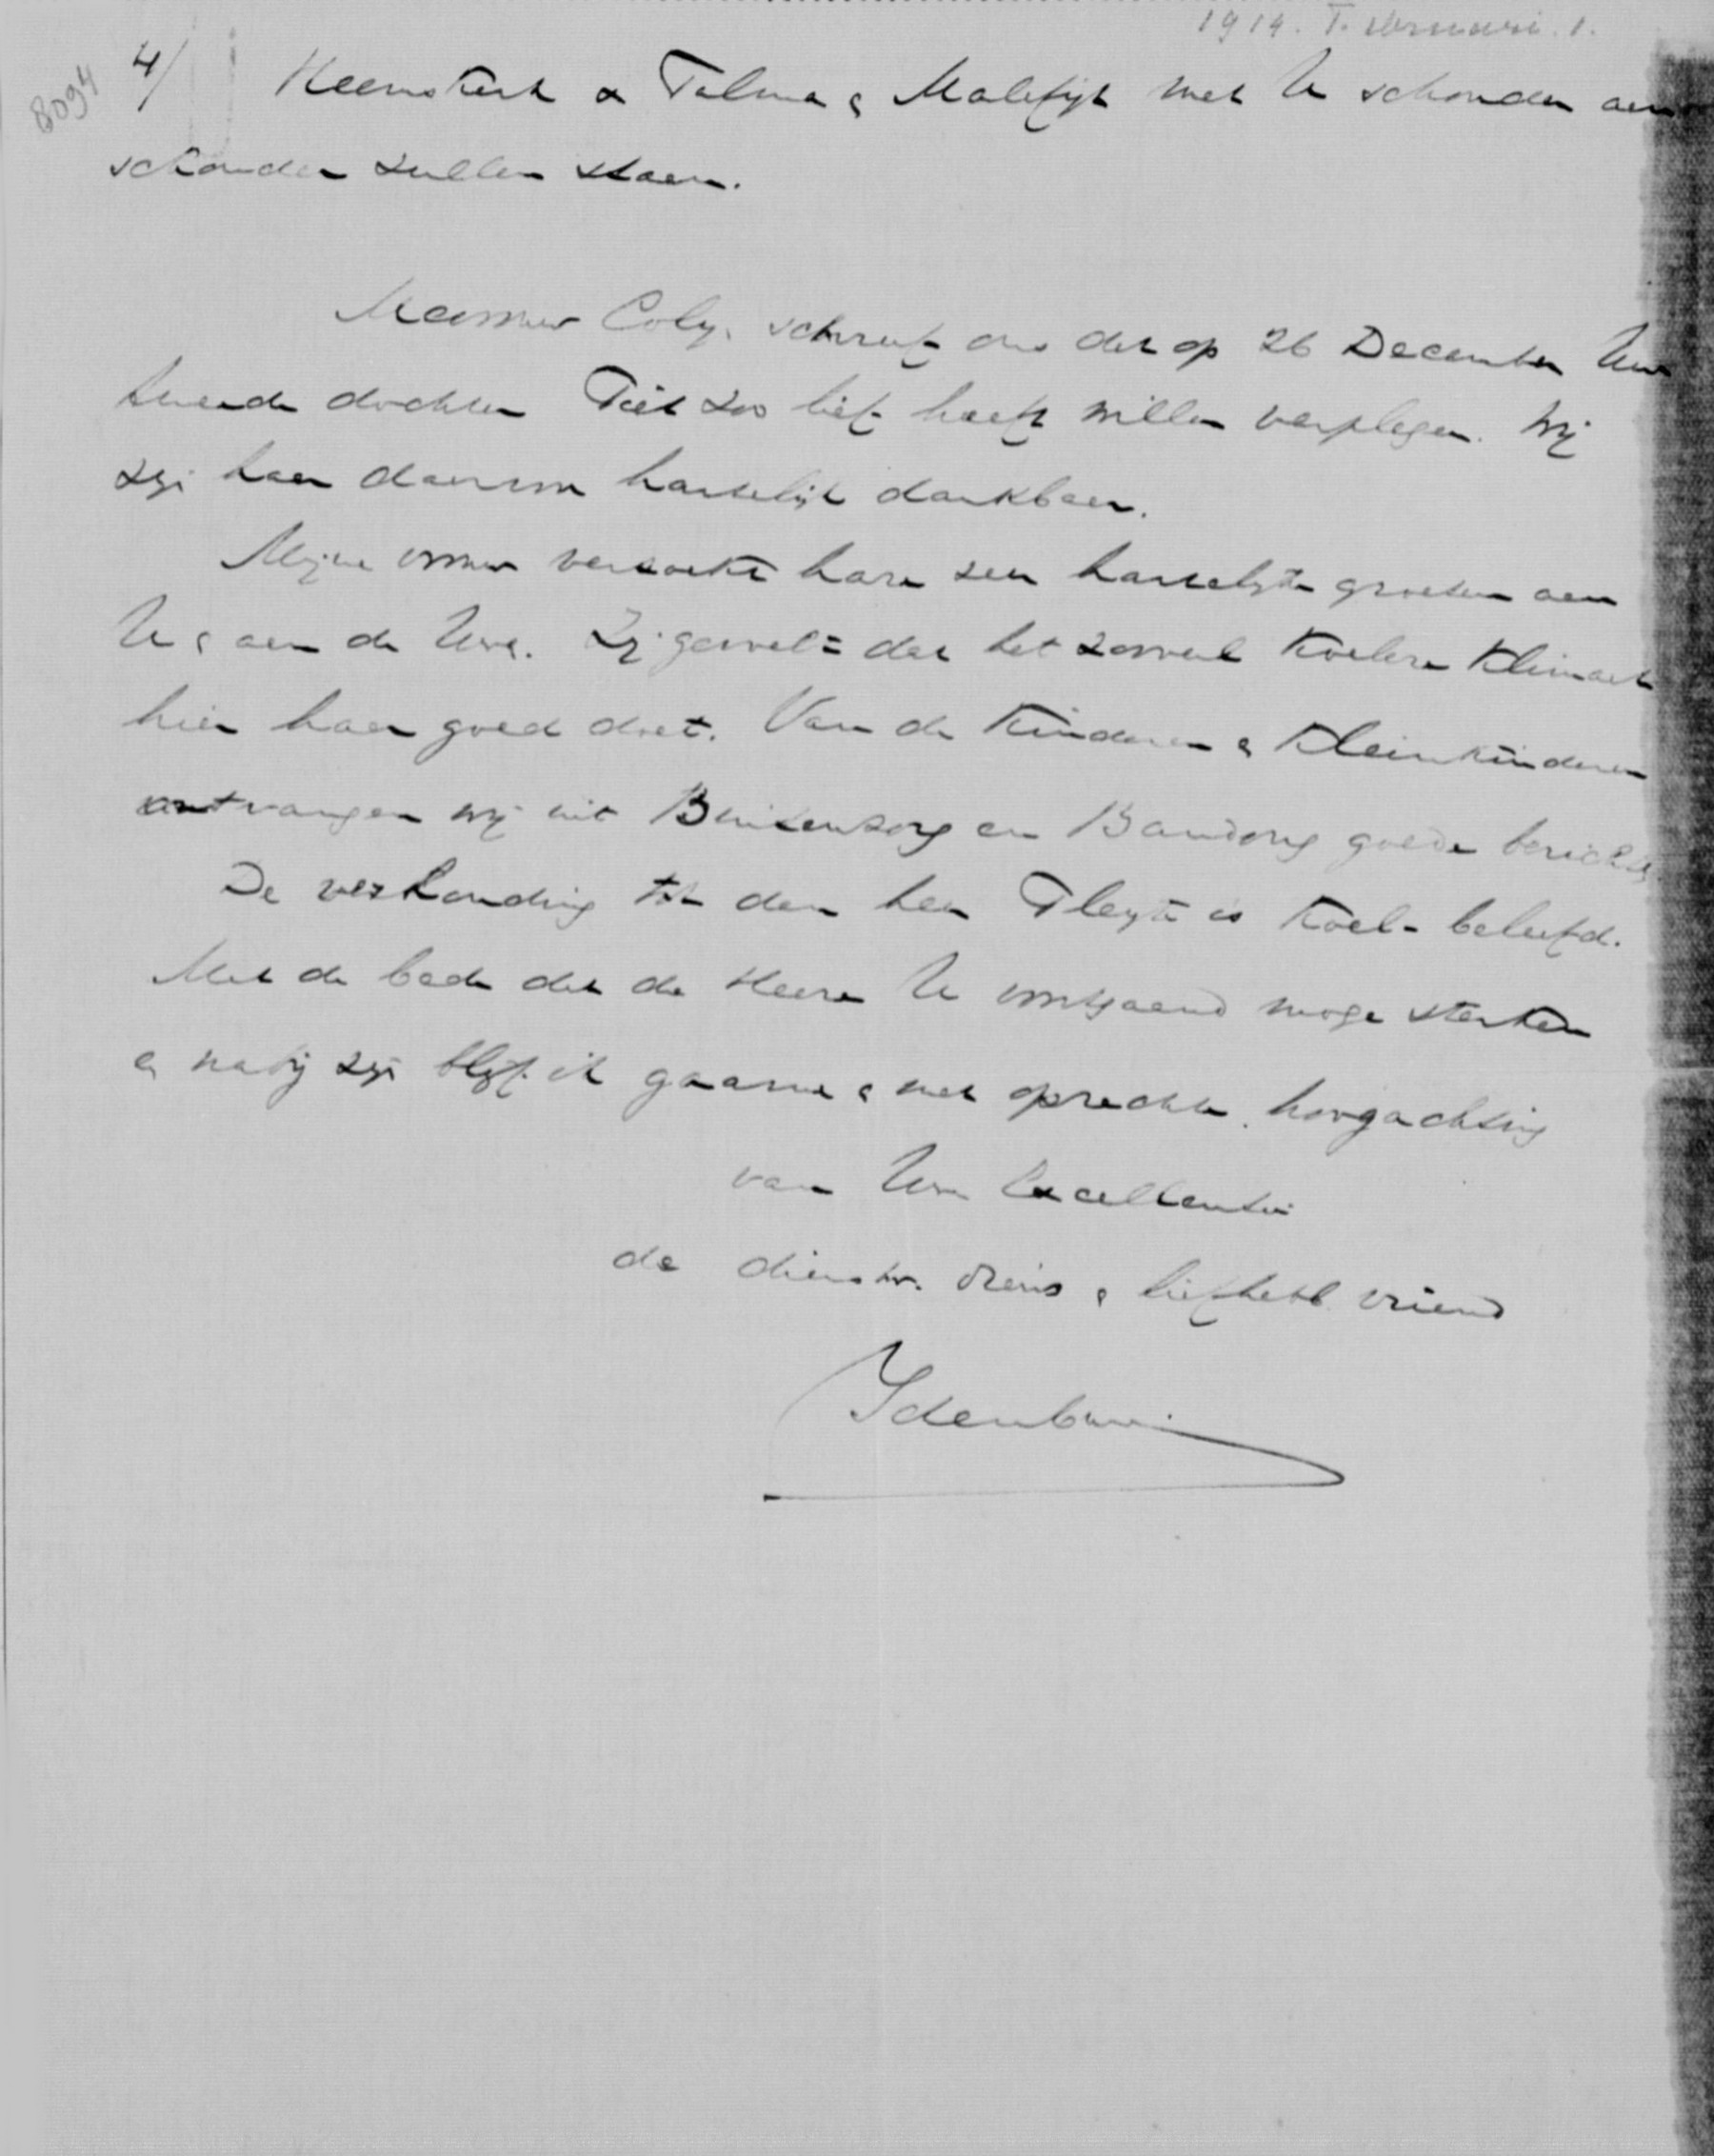 1914. Februari. 1.
8094
4/ Heemskerk & Talma & Malefijt met U schouder aan
schouder zullen staan.
Mevrouw Colijn schreef ons dat op 26 December Uw
tweede dochter Piet zoo lief heeft willen verplegen. Wij
zijn haar daarvoor hartelijk dankbaar.
Mijne vrouw verzoekt hare zeer hartelijke groeten aan
U & aan de Uwe. Zij gevoelt dat het zooveel koelere klimaat
hier haar goed doet. Van de kinderen & kleinkinderen
ontvangen wij uit Buitenzorg en Bandong goede berichten
De verhouding tot den heer Pleyte is koel-beleefd.
Met de bede dat de Heere U voortgaand moge sterken
& nabij zijn blijf ik gaarne & met oprechte hoogachting
van Uwe Excellentie
de dienstw. dienr & liefhebb vriend
Idenburg